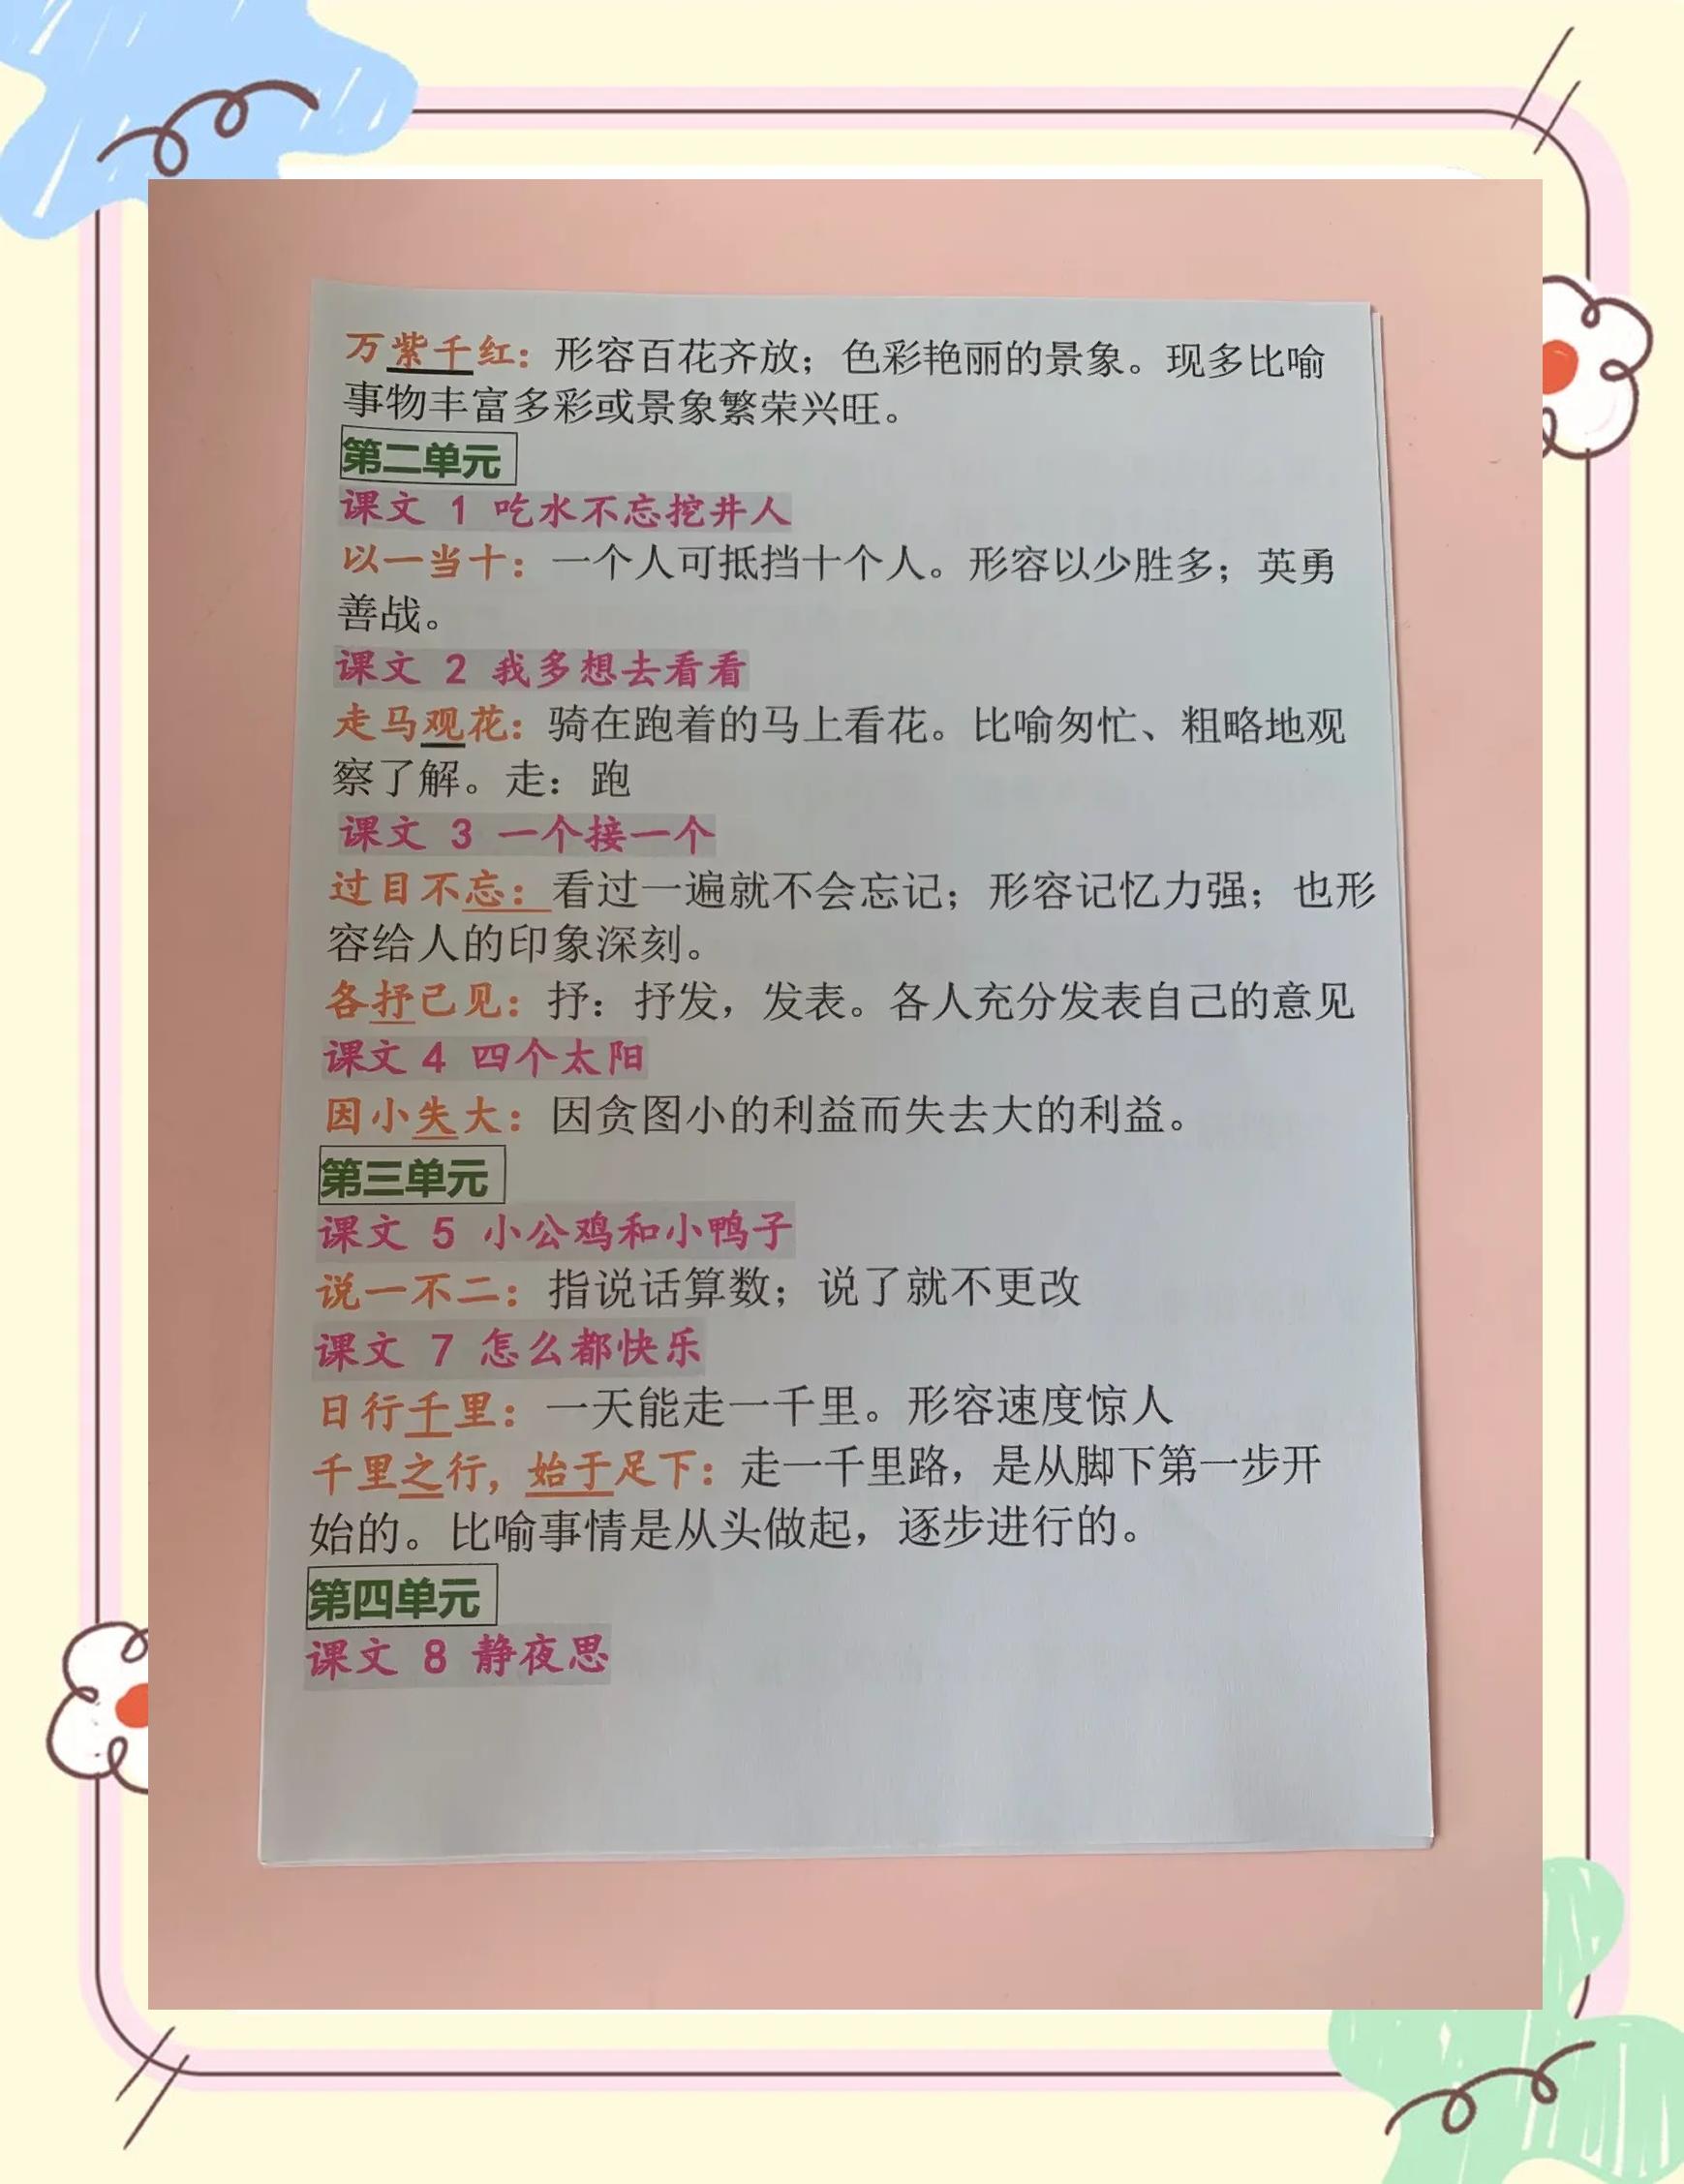 万紫千红：形容百花齐放；色彩艳丽的景象。现多比喻
事物丰富多彩或景象繁荣兴旺。
第二单元
课文 1 吃水不忘挖井人
以一当十：一个人可抵挡十个人。形容以少胜多；英勇
善战。
课文 2 我多想去看看
走马观花：骑在跑着的马上看花。比喻匆忙、粗略地观
察了解。走：跑
课文 3 一个接一个
过目不忘：看过一遍就不会忘记；形容记忆力强；也形
容给人的印象深刻。
各抒己见：抒：抒发，发表。各人充分发表自己的意见
课文 4 四个太阳
因小失大：因贪图小的利益而失去大的利益。
第三单元
课文 5 小公鸡和小鸭子
说一不二：指说话算数；说了就不更改
课文 7 怎么都快乐
日行千里：一天能走一千里。形容速度惊人
千里之行，始于足下：走一千里路，是从脚下第一步开
始的。比喻事情是从头做起，逐步进行的。
第四单元
课文 8 静夜思